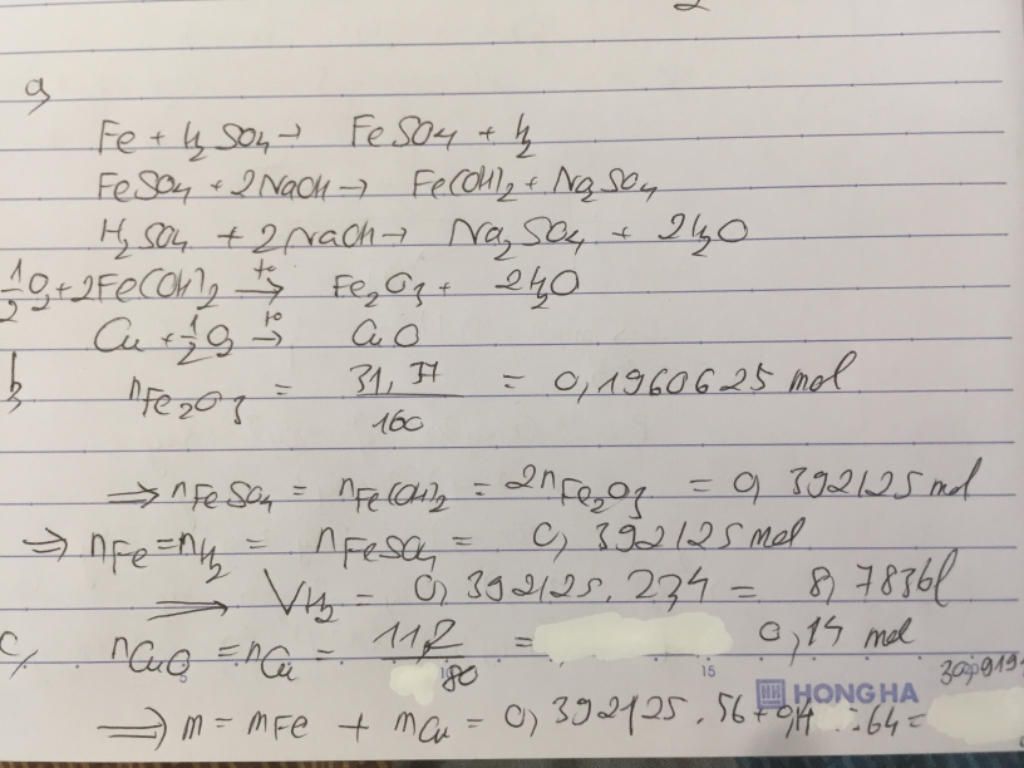 2
a,
Fe + H2SO4 → FeSO4 + H2
FeSO4 + 2NaOH → Fe(OH)2 + Na2SO4
H2SO4 + 2NaOH → Na2SO4 + 2H2O
1/2 O2 + 2Fe(OH)2 →(to) Fe2O3 + 2H2O
Cu + 1/2 O2 →(to) CuO
b, nFe2O3 = 31,37/160 = 0,1960625 mol
⇒ nFeSO4 = nFe(OH)2 = 2nFe2O3 = 0,392125 mol
⇒ nFe = nH2 = nFeSO4 = 0,392125 mol
⇒ VH2 = 0,392125.22,4 = 8,7836l
c, nCuO = nCu = 11,2/80 = 0,14 mol
5 10 15 HONG HA 30,919
⇒ m = mFe + mCu = 0,392125.56 + 0,14.64 =